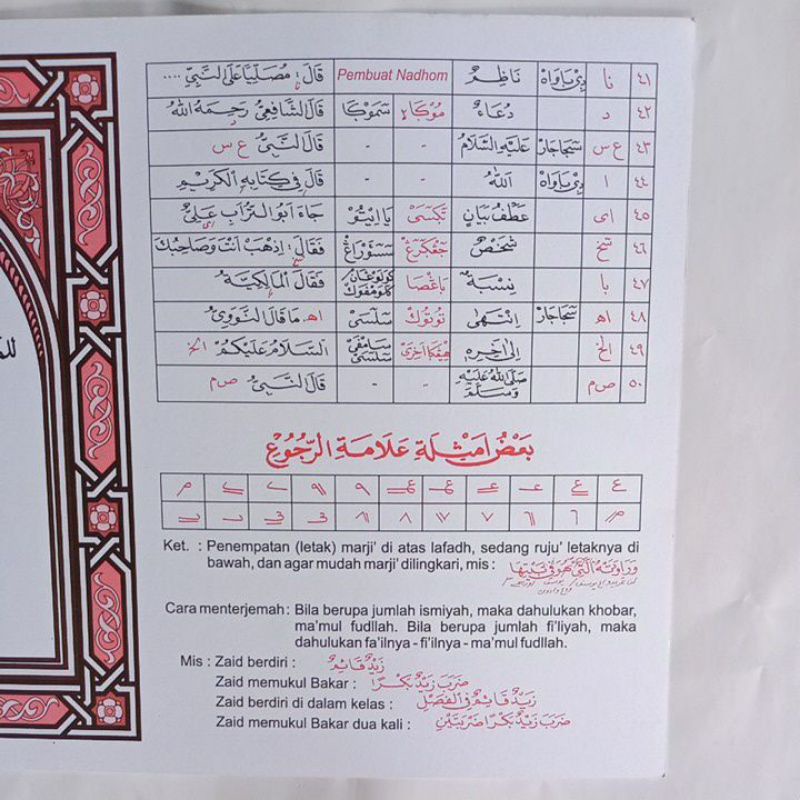 ٤١ نا دي باواه ناظم Pembuat Nadhom قال: مصليا على النبي ....
٤٢ د دعاء موكاء سموكا قال الشافعي رحمه الله
٤٣ ع س سجاجار عليه السلام - - قال النبي ع س
٤٤ ا دي باواه الله - - قال في كتابه الكريم
٤٥ اى عطف بيان تكسى يا ايتو جاء ابو التراب اى علي
٤٦ شخص فقال: اذهب انت وصاحبك
٤٧ با نسبة فقال المالكية
٤٨ اه سجاجار انتهى توتوك سلسى اه. ما قال النووي
٤٩ الخ الى اخره السلام عليكم الخ
٥٠ ص م صلى الله عليه وسلم - - قال النبي ص م
بعض امثلة علامة الرجوع
Ket. : Penempatan (letak) marji' di atas lafadh, sedang ruju' letaknya di
bawah, dan agar mudah marji' dilingkari, mis : وراودته التي هو في بيتها
Cara menterjemah : Bila berupa jumlah ismiyah, maka dahulukan khobar,
ma'mul fudllah. Bila berupa jumlah fi'liyah, maka
dahulukan fa'ilnya - fi'ilnya - ma'mul fudllah.
Mis : Zaid berdiri : زيد قائم
Zaid memukul Bakar : ضرب زيد بكرا
Zaid berdiri di dalam kelas : زيد قائم في الفصل
Zaid memukul Bakar dua kali : ضرب زيد بكرا ضربتين